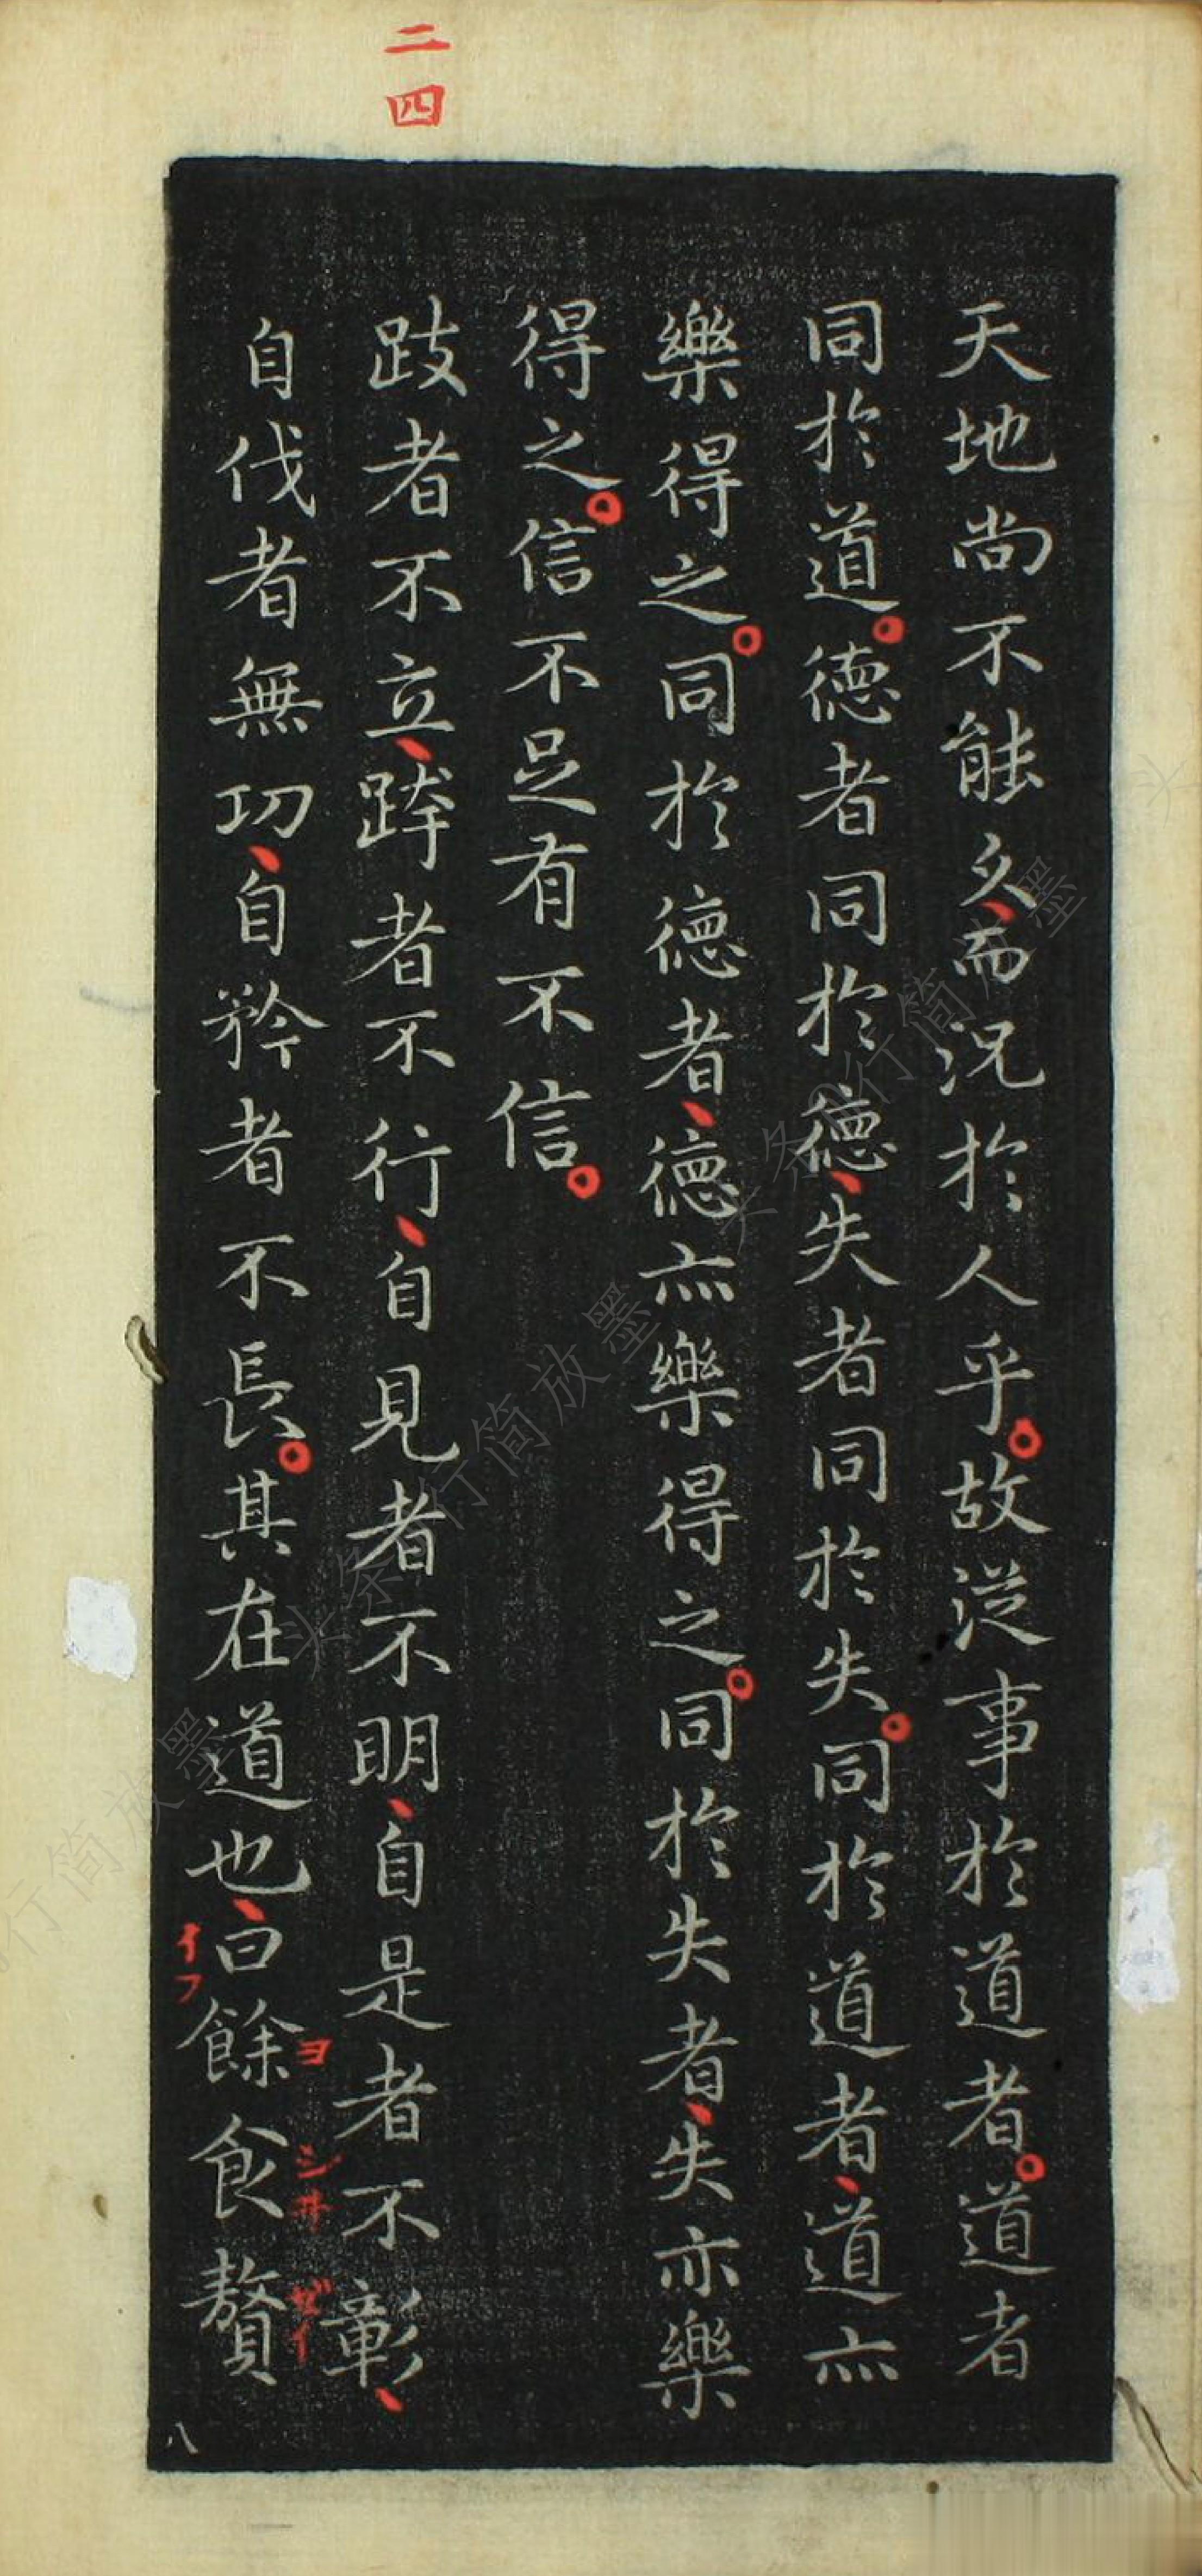 二四
天地尚不能久、而況於人乎。故從事於道者。道者
同於道。德者同於德、失者同於失。同於道者、道亦
樂得之。同於德者、德亦樂得之。同於失者、失亦樂
得之。信不足有不信。
跂者不立、跨者不行、自見者不明、自是者不彰、
自伐者無功、自矜者不長。其在道也、曰餘食贅
イフ
ヨ
シヰ
ゼイ
八
头条@行简放墨
头条@行简放墨
行简放墨